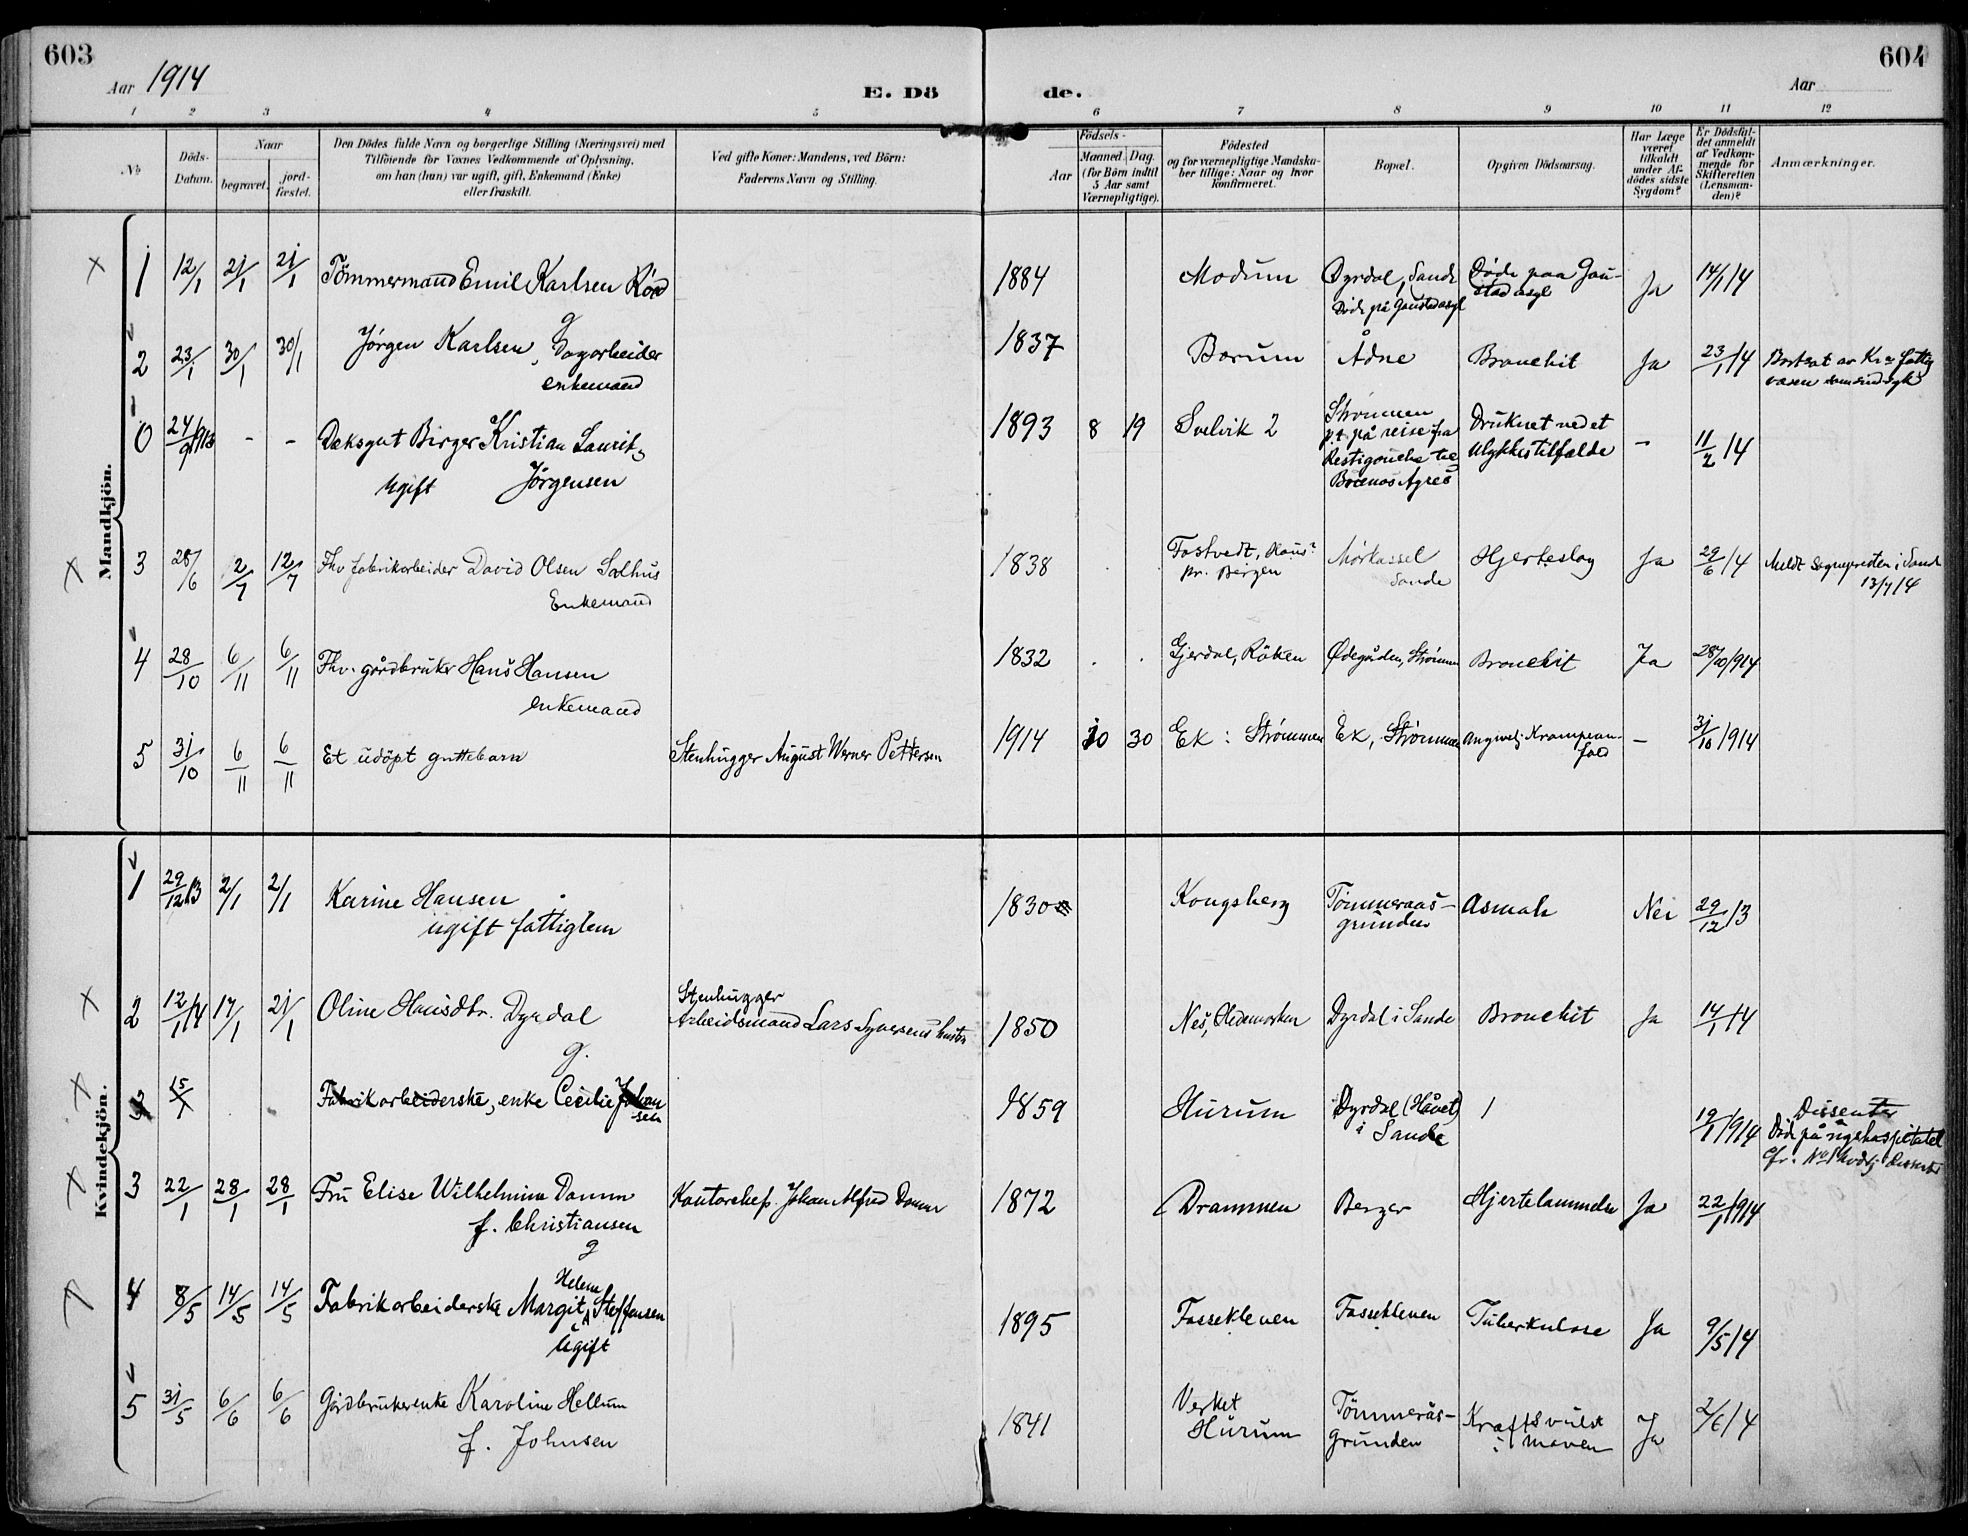 603
604
Aar 1914
E. Dö
de.
Aar
1 2 3 4 5 6 7 8 9 10 11 12
No
Döds-
Datum.
Naar
begravet.
jord-
fæstet.
Den Dödes fulde Navn og borgerlige Stilling (Næringsvei) med
Tilföiende for Voxnes Vedkommende af Oplysning,
om han (hun) var ugift, gift, Enkemand (Enke)
eller fraskilt.
Ved gifte Koner: Mandens, ved Börn:
Faderens Navn og Stilling.
Födsels-
Aar
Maaned.
Dag.
(for Börn indtil
5 Aar samt
Værnepligtige).
Födested
og for værnepligtige Mandska-
ber tillige: Naar og hvor
konfirmeret.
Bopæl.
Opgiven Dödsaarsag.
Har Læge
været
tilkaldt
under Af-
dödes sidste
Sygdom?
Er Dödsfal-
det anmeldt
af Vedkom-
mende for
Skifteretten
(Lensman-
den)?
Anmærkninger.
Mandkjön.
1 12/1 21/1 21/1 Tömmermand Emil Karlsen 1884 Modum Dyrdal, Sande Döde paa Gau- Ja 14/1 14
g
Døde på Gaustadasyl stad asyl
2 23/1 30/1 30/1 Jørgen Karlsen, Sagarbeider 1837 Bærum Ådne Bronchit Ja 23/1 14 Bortsat av Kra fattig
enkemand
væsen som sindssyk
0 24/9 1913 - - Dæksgut Birger Kristian Laurits 1893 8 19 Svelvik 2 Strømmen Druknet ved et - 11/2 14
Ugift Jørgensen
p.t. på reise fra ulykkestilfælde
Restigouche til
Buenos Ayres
3 28/6 2/7 12/7 Fhv fabrikarbeider David Olsen Solhus 1838 Mørkassel Hjerteslag Ja 29/6 14 Meldt Sognepresten i Sande
Enkemand
pr. Bergen Sande 13/7 14
4 28/10 6/11 6/11 Fhv. gårdbruker Hans Hansen 1832 . . Gjerdal, Röken Ødegården, Strömm Bronchit Ja 28/10 1914
enkemand
5 31/10 6/11 6/11 Et udöpt guttebarn Stenhugger August Werner Pettersen 1914 10 30 Ek: Strömmen Ek, Strömmen angivelig Krampean- - 31/10 1914
fald
Kvindekjön.
1 29/12 13 2/1 2/1 Karine Hansen 1830 Kongsberg Tömmeraas- Asmah Nei 29/12 13
ugift fattiglem
grunden
2 12/1 14 17/1 21/1 Oline Hansdtr. Dyrdal Stenhugger
Arbeidsmand Lars Syversens hustru 1850 Nes, Hedemarken Dyrdal i Sande Bronchit Ja 14/1 14
g.
3 15/1 Fabrikarbeiderske, enke Cecilie Johan-
sen 1859 Hurum Dyrdal (Håvet)
i Sande 19/1 1914 Dissenter
Död på rigshospitalet
cfr. No 1 Dissentr
3 22/1 28/1 28/1 Fru Elise Wilhelmine Damm Kontorchef Johan Alfred Damm 1872 Drammen Berger Hjertelammelse Ja 22/1 1914
f. Christiansen
g
4 8/5 14/5 14/5 Fabrikarbeiderske Margit Helene Steffensen 1895 Fossekleven Fossekleven Tuberkulose Ja 9/5 14
Ugift
5 31/5 6/6 6/6 Gårdbrukerenke Karoline Hellum 1841 Verket Tömmerås- Kræftsvulst Ja 2/6 14
f. Johnsen
Hurum grunden i maven